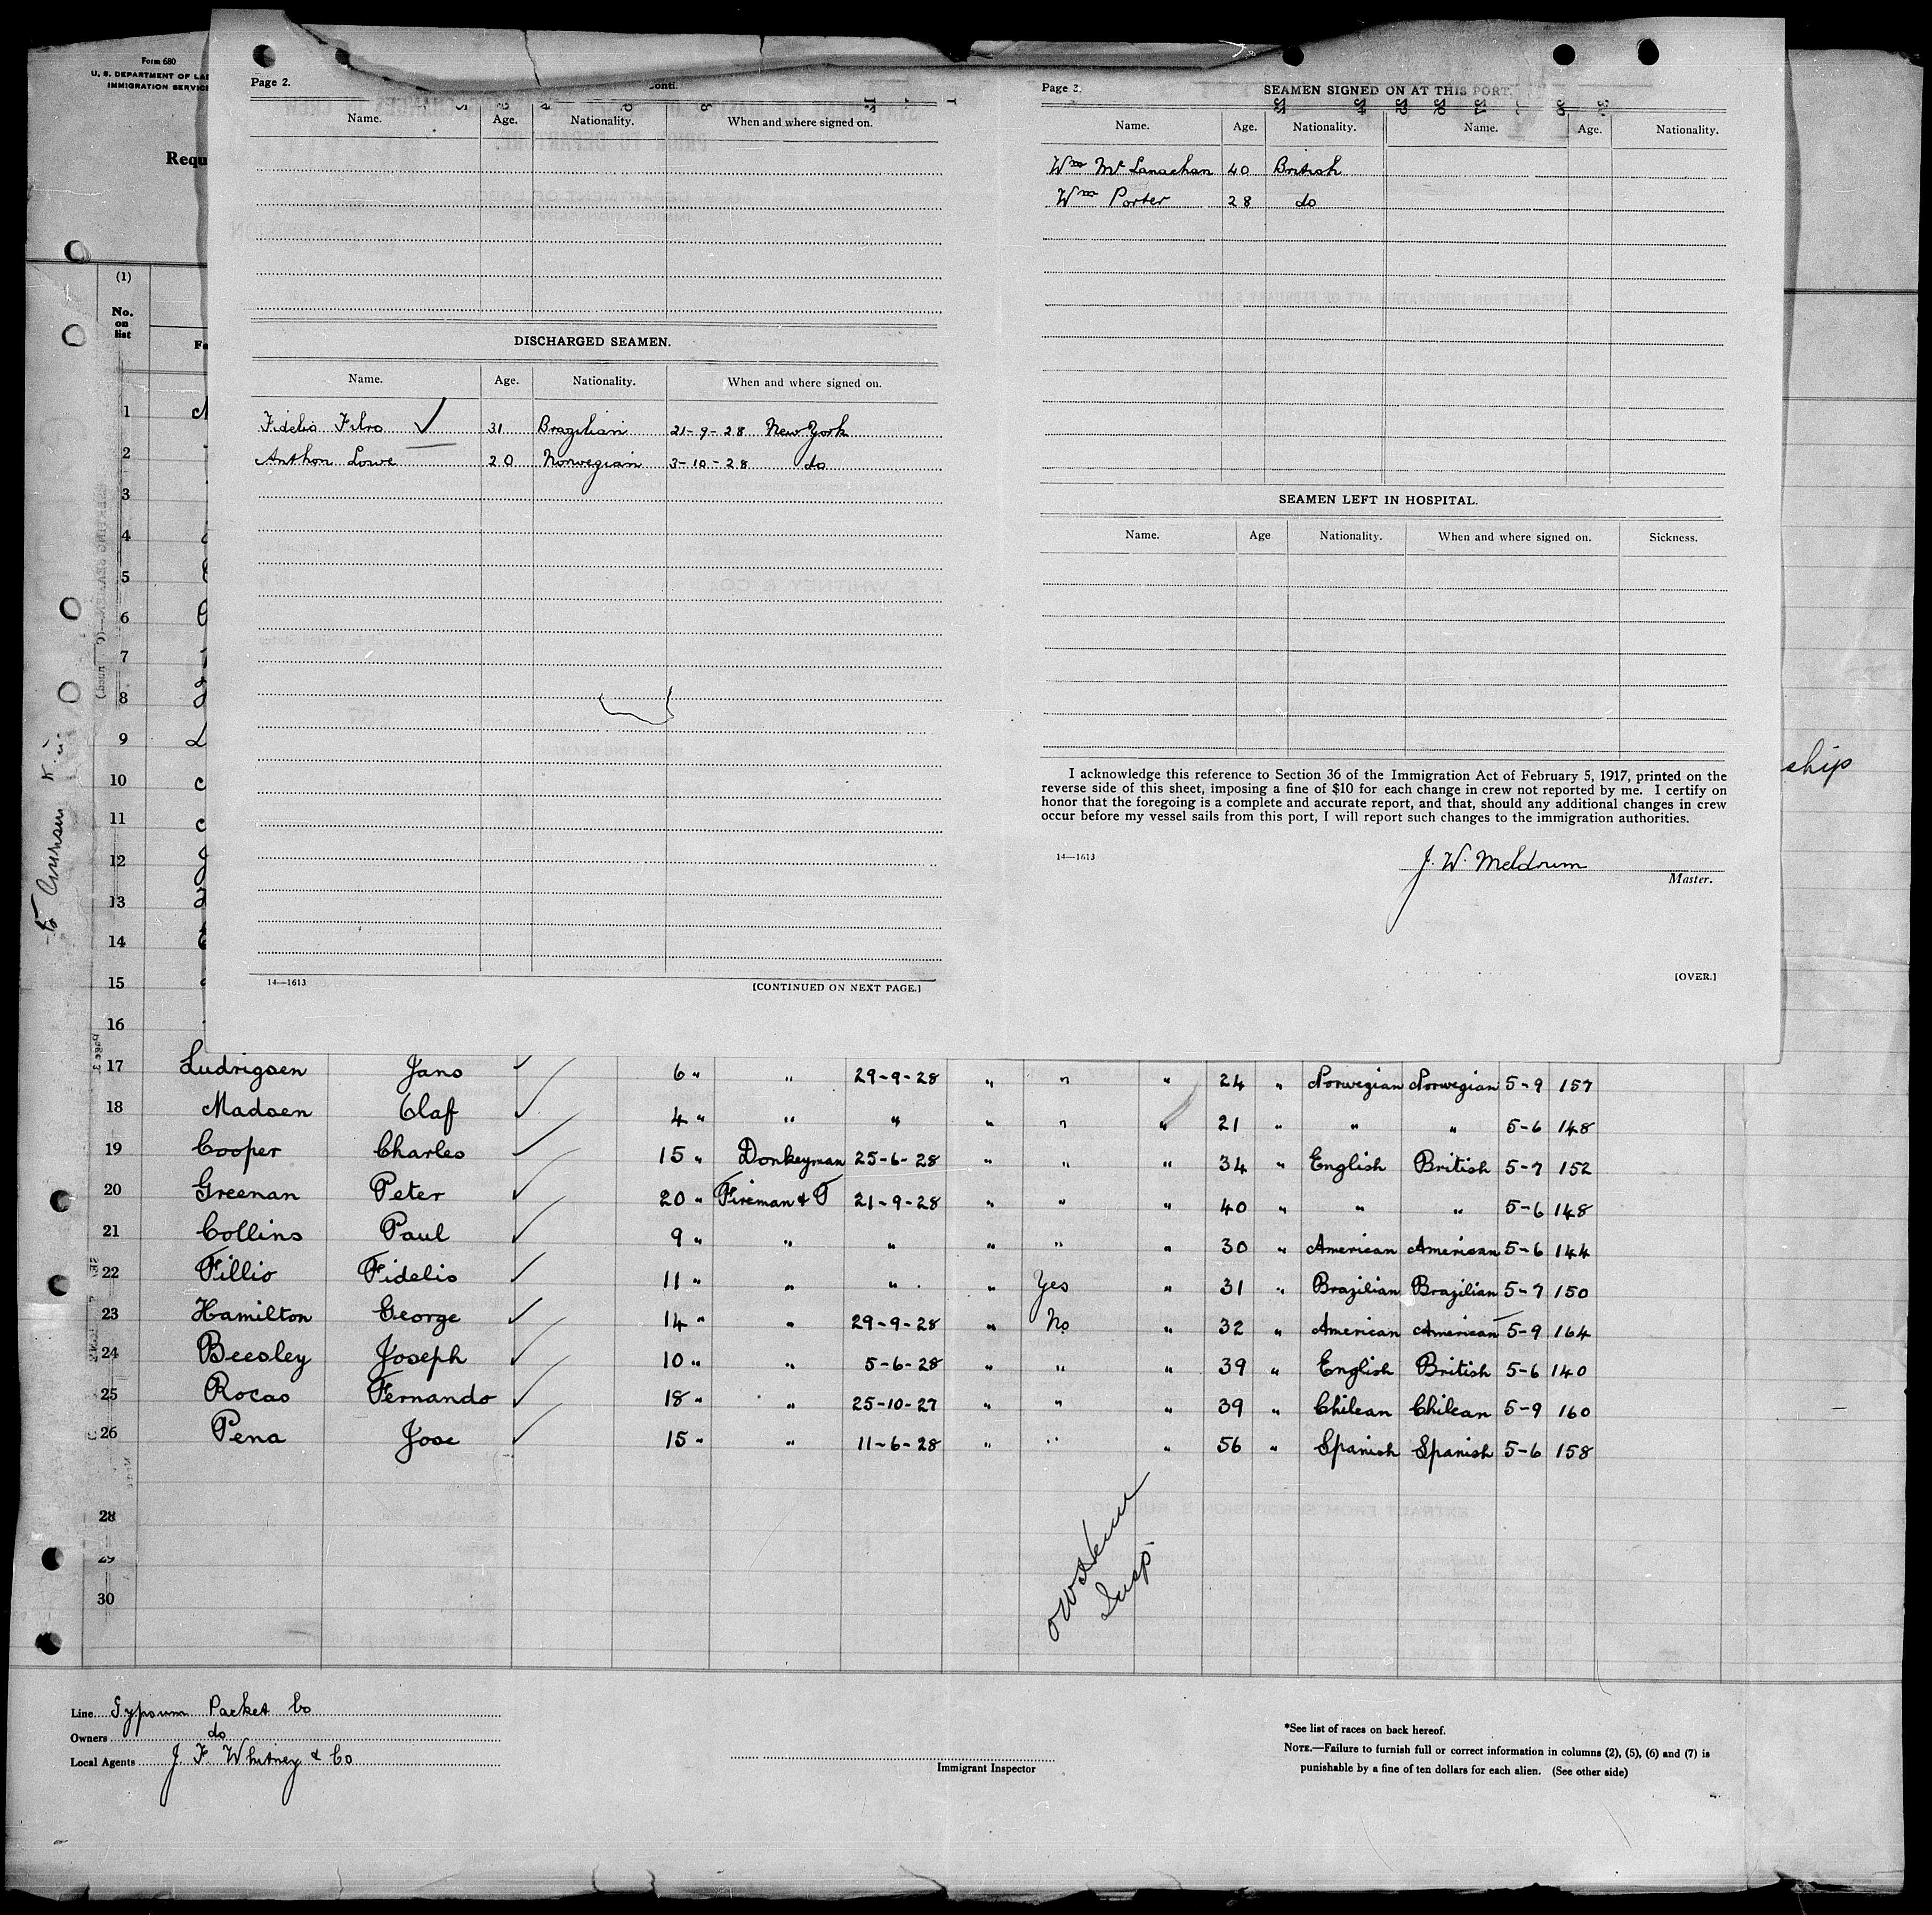 Form 680
U. S. DEPARTMENT OF LA
IMMIGRATION SERVIC
Requ
(1)
No.
on
list
Page 2.
Name. Age. Nationality. When and where signed on.
DISCHARGED SEAMEN.
Name. Age. Nationality. When and where signed on.
Fidelio Filro ✓ 31 Brazilian 21-9-28 New York
Anthon Lowe 20 Norwegian 3-10-28 do
14—1613
[CONTINUED ON NEXT PAGE.]
Page 3.
SEAMEN SIGNED ON AT THIS PORT.
Name. Age. Nationality. Name. Age. Nationality.
Wm McLanachan 40 British
Wm Porter 28 do
SEAMEN LEFT IN HOSPITAL.
Name. Age Nationality. When and where signed on. Sickness.
I acknowledge this reference to Section 36 of the Immigration Act of February 5, 1917, printed on the
reverse side of this sheet, imposing a fine of $10 for each change in crew not reported by me. I certify on
honor that the foregoing is a complete and accurate report, and that, should any additional changes in crew
occur before my vessel sails from this port, I will report such changes to the immigration authorities.
14—1613
J. W. Meldrum
Master.
[OVER.]
ship
1
2
3
4
5
6
7
8
9
10
11
12
13
14
15
16
17 Ludrigsen Jans ✓ 6 " " 29-9-28 " " " 24 " Norwegian Norwegian 5-9 157
18 Madsen Olaf ✓ 4 " " " " " " 21 " " " 5-6 148
19 Cooper Charles ✓ 15 " Donkeyman 25-6-28 " " " 34 " English British 5-7 152
20 Greenan Peter ✓ 20 " Fireman & T 21-9-28 " " " 40 " " " 5-6 148
21 Collins Paul ✓ 9 " " " " " " 30 " American American 5-6 144
22 Fillio Fidelis ✓ 11 " " " " Yes " 31 " Brazilian Brazilian 5-7 150
23 Hamilton George ✓ 14 " " 29-9-28 " No " 32 " American American 5-9 164
24 Beesley Joseph ✓ 10 " " 5-6-28 " " " 39 " English British 5-6 140
25 Rocas Fernando ✓ 18 " " 25-10-27 " " " 39 " Chilean Chilean 5-9 160
26 Pena Jose ✓ 15 " " 11-6-28 " " " 56 " Spanish Spanish 5-6 158
28
29
30
Insp
Line Gypsum Packet Co
Owners do
Local Agents J. F. Whitney & Co
Immigrant Inspector
*See list of races on back hereof.
NOTE.—Failure to furnish full or correct information in columns (2), (5), (6) and (7) is
punishable by a fine of ten dollars for each alien. (See other side)